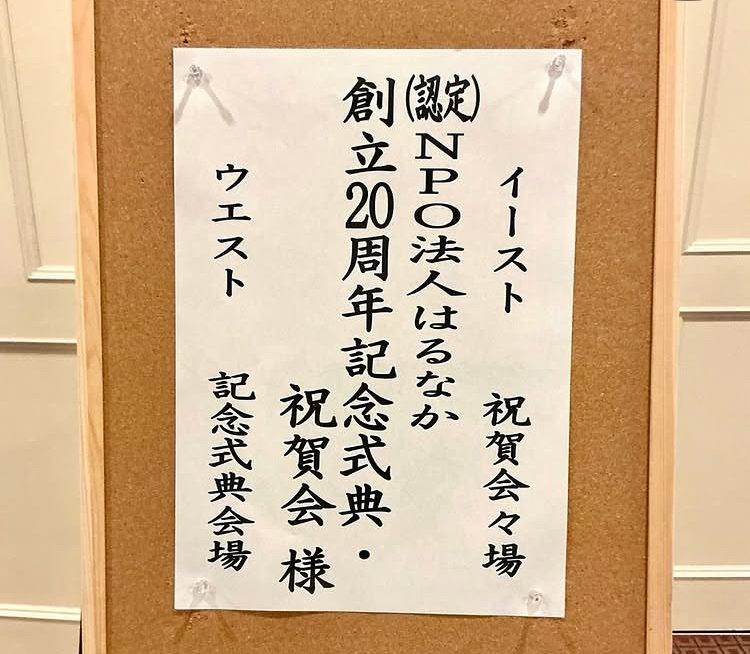 イースト　祝賀会々場
(認定)NPO法人はるなか
創立20周年記念式典・
祝賀会 様
ウエスト　記念式典会場